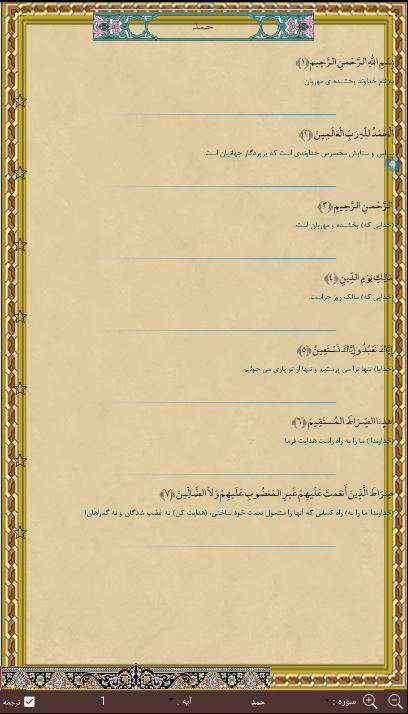 حمد
بِسْمِ اللَّهِ الرَّحْمنِ الرَّحِيمِ ﴿۱﴾
به نام خداوند بخشنده ی مهربان
الْحَمْدُ للّهِ رَبِّ الْعَالَمِينَ ﴿۲﴾
سپاس و ستایش مخصوص خداوندی است که پروردگار جهانیان است.
الرَّحْمنِ الرَّحِيمِ ﴿۳﴾
(خدایی که) بخشنده و مهربان است.
مَالِكِ يَوْمِ الدِّينِ ﴿۴﴾
(خدایی که) مالک روز جزاست.
إِيَّاكَ نَعْبُدُ وإِيَّاكَ نَسْتَعِينُ ﴿۵﴾
(خدایا) تنها ترا می پرستیم و تنها از تو یاری می جوئیم.
اهدِنَا الصِّرَاطَ المُستَقِيمَ ﴿۶﴾
(خداوندا) ما را به راه راست هدایت فرما
صِرَاطَ الَّذِينَ أَنعَمتَ عَلَيهِمْ غَيرِ المَغضُوبِ عَلَيهِمْ وَلاَ الضَّالِّينَ ﴿۷﴾
(خداوندا! ما را به) راه کسانی که آنها را مشمول نعمت خود ساختی، (هدایت کن) نه غضب شدگان و نه گمراهان!
سوره : حمد آیه : 1 ترجمه